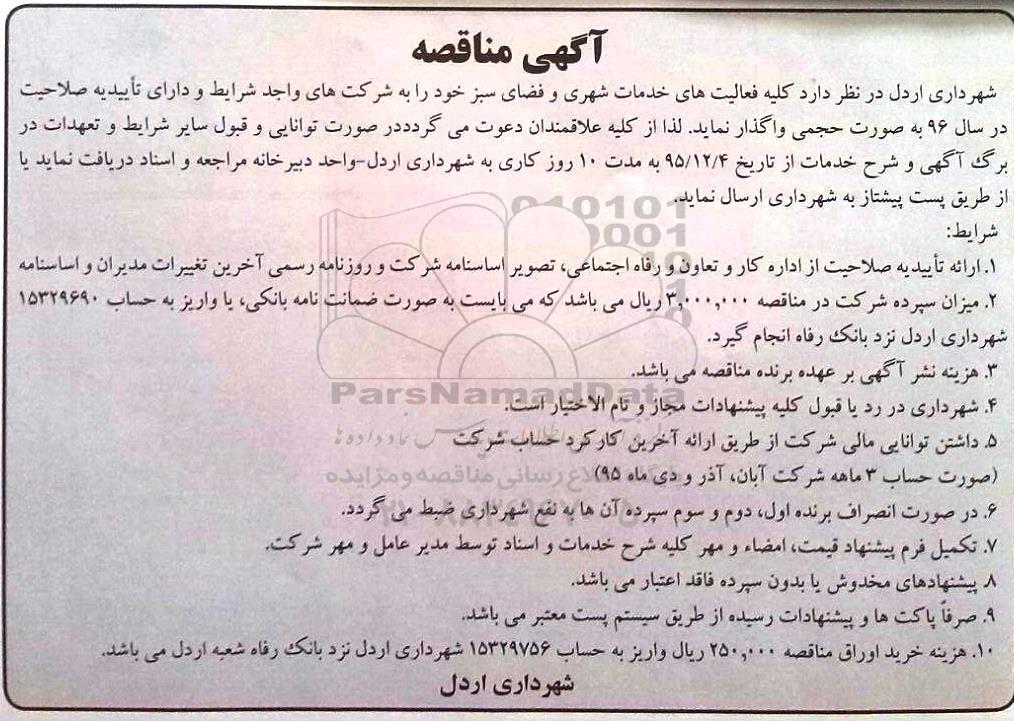 آگهی مناقصه
شهرداری اردل در نظر دارد کلیه فعالیت های خدمات شهری و فضای سبز خود را به شرکت های واجد شرایط و دارای تأییدیه صلاحیت
در سال ۹۶ به صورت حجمی واگذار نماید. لذا از کلیه علاقمندان دعوت می گردددر صورت توانایی و قبول سایر شرایط و تعهدات در
برگ آگهی و شرح خدمات از تاریخ ۹۵/۱۲/۴ به مدت ۱۰ روز کاری به شهرداری اردل-واحد دبیرخانه مراجعه و اسناد دریافت نماید یا
از طریق پست پیشتاز به شهرداری ارسال نماید.
شرایط:
۱. ارائه تأییدیه صلاحیت از اداره کار و تعاون و رفاه اجتماعی، تصویر اساسنامه شرکت و روزنامه رسمی آخرین تغییرات مدیران و اساسنامه
۲. میزان سپرده شرکت در مناقصه ۳,۰۰۰,۰۰۰ ریال می باشد که می بایست به صورت ضمانت نامه بانکی، یا واریز به حساب ۱۵۳۲۹۶۹۰
شهرداری اردل نزد بانک رفاه انجام گیرد.
۳. هزینه نشر آگهی بر عهده برنده مناقصه می باشد.
ParsNamadData
۴. شهرداری در رد یا قبول کلیه پیشنهادات مجاز و تام الاختیار است.
۵. داشتن توانایی مالی شرکت از طریق ارائه آخرین کارکرد حساب شرکت
(صورت حساب ۳ ماهه شرکت آبان، آذر و دی ماه ۹۵)
۶. در صورت انصراف برنده اول، دوم و سوم سپرده آن ها به نفع شهرداری ضبط می گردد.
۷. تکمیل فرم پیشنهاد قیمت، امضاء و مهر کلیه شرح خدمات و اسناد توسط مدیر عامل و مهر شرکت.
۸. پیشنهادهای مخدوش یا بدون سپرده فاقد اعتبار می باشد.
۹. صرفاً پاکت ها و پیشنهادات رسیده از طریق سیستم پست معتبر می باشد.
۱۰. هزینه خرید اوراق مناقصه ۲۵۰,۰۰۰ ریال واریز به حساب ۱۵۳۲۹۷۵۶ شهرداری اردل نزد بانک رفاه شعبه اردل می باشد.
شهرداری اردل